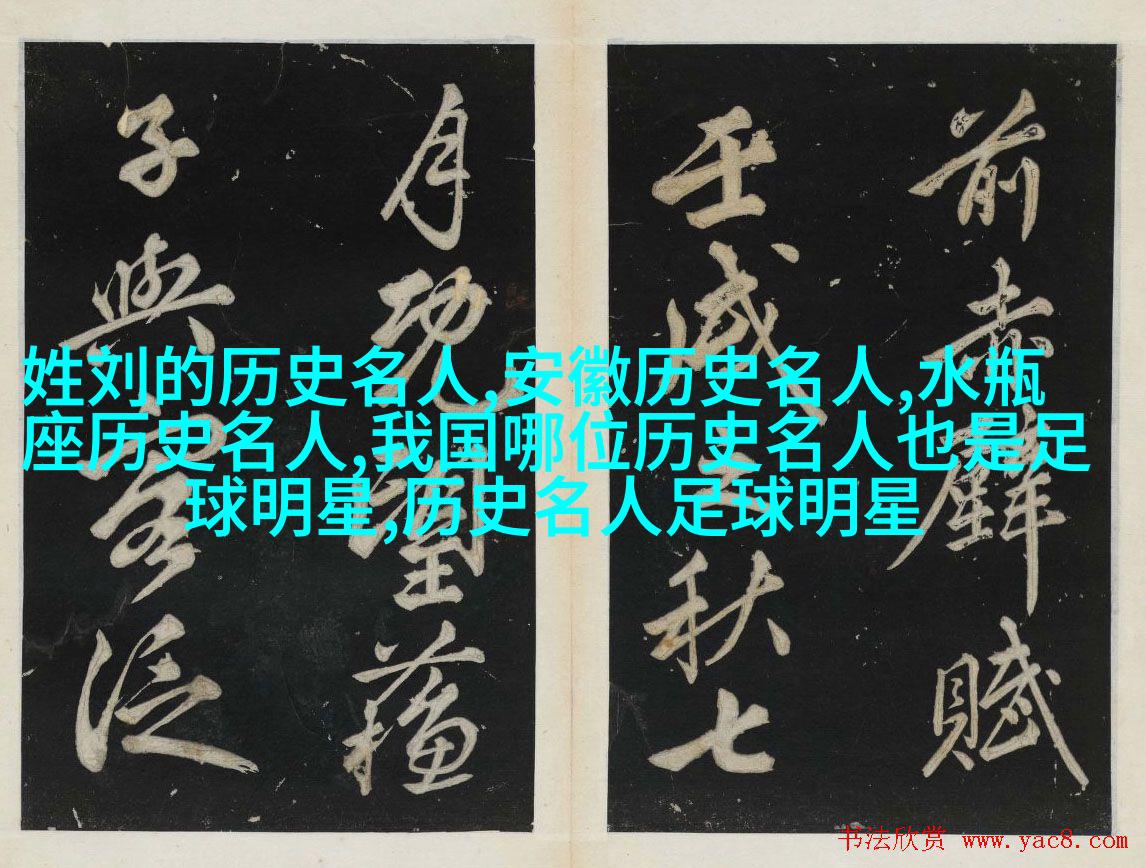 前赤壁賦
壬戌之秋七
月既望蘓
子與客泛
姓刘的历史名人,安徽历史名人,水瓶
座历史名人,我国哪位历史名人也是足
球明星,历史名人足球明星
书法欣赏 www.yac8.com